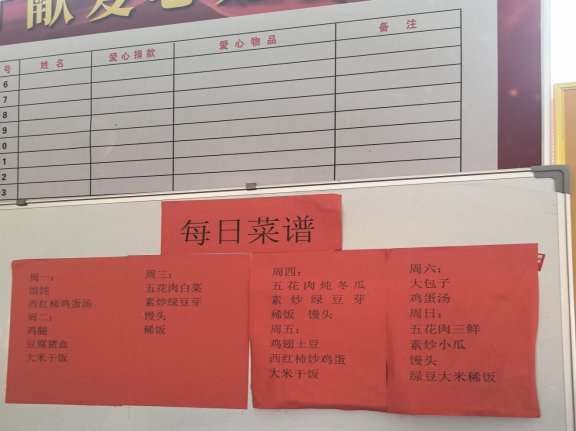 献爱心
号 姓名 爱心捐款 爱心物品 备注
6
7
8
9
0
1
2
3
每日菜谱
周一:
馄饨
西红柿鸡蛋汤
周二:
鸡腿
豆腐猪血
大米干饭
周三:
五花肉白菜
素炒绿豆芽
馒头
稀饭
周四:
五花肉炖冬瓜
素炒绿豆芽
稀饭 馒头
周五:
鸡翅土豆
西红柿炒鸡蛋
大米干饭
周六:
大包子
鸡蛋汤
周日:
五花肉三鲜
素炒小瓜
馒头
绿豆大米稀饭